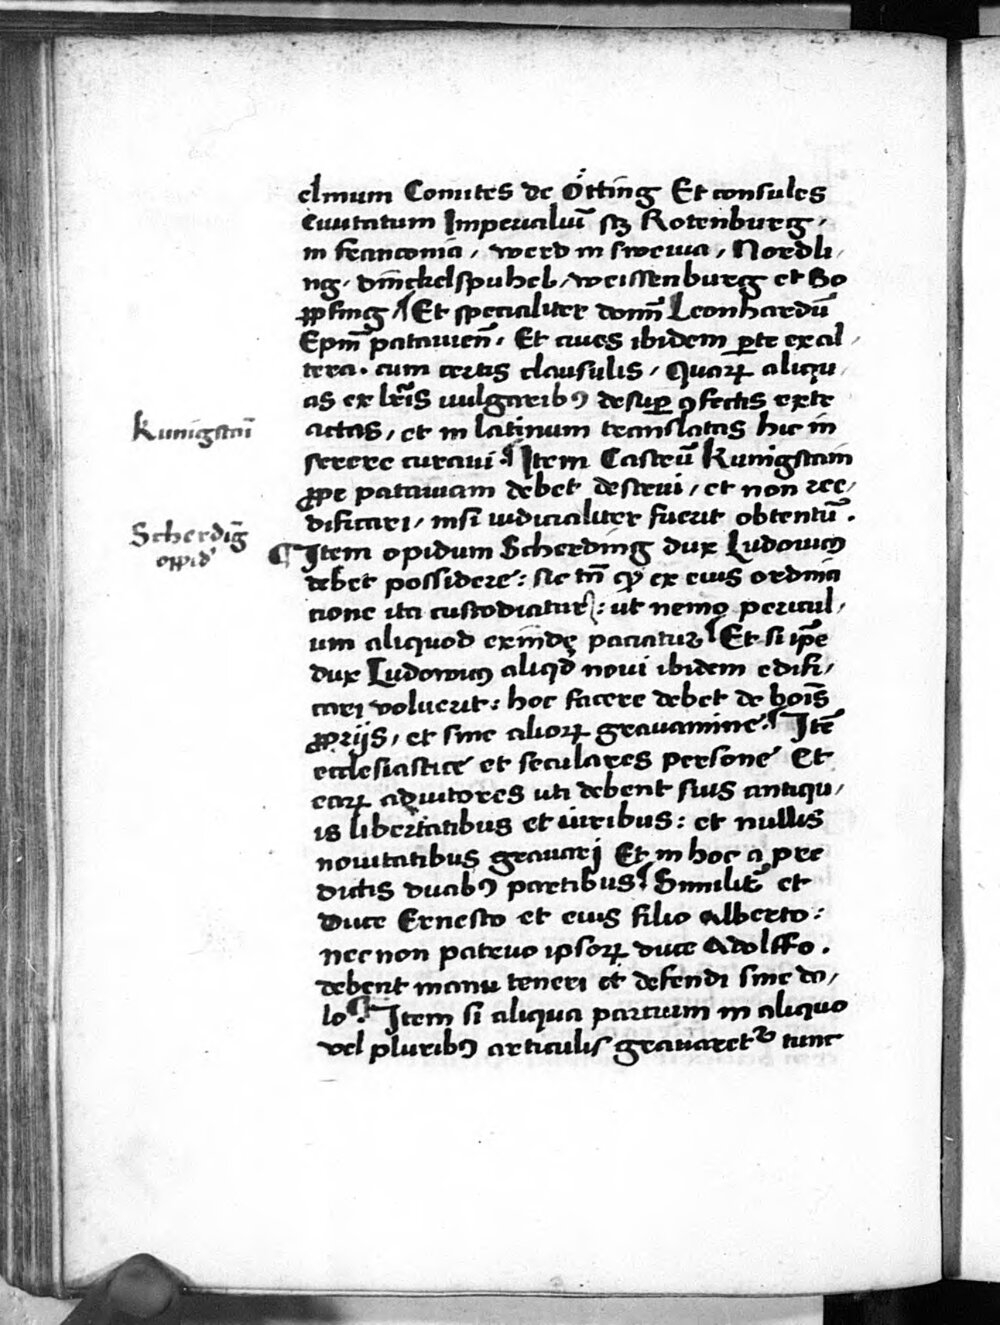 elmum Comites de Ötting Et consules
Ciuitatum Imperialiū sꝫ Rotenburg,
in franconia, werd in sweuia, Nordli,
ng, dinckelspuhel, weissenburg et Bo
ꝓpfing Et specialiter domī Leonhardū
Epm̄ patauien̄, Et ciues ibidem ꝑte ex al,
tera. cum certis clausulis, Quaꝝ aliqu,
as ex lr̄is uulgaribꝰ desuꝑ ꝯfectis extr
actas, et in latinum translatas hic in
serere curaui Item Castrū Kunigstain
ꝓpe patauiam debet destrui, et non ree,
dificari, nisi iudicialiter fuerit obtentū.
Kunigstaī
¶ Item opidum Scherding dux Ludouicꝰ
Scherdīg
oppid
debet possidere: sic tn̄ ꝙ ex eius ordina
tione ita custodiatur: ut nemo pericul,
um aliquod exinde paciatur Et si ip̄e
dux Ludouicꝰ aliqd noui ibidem edifi,
cari voluerit: hoc facere debet de bonis
ꝓprijs, et sine alioꝝ grauamine. Itē
ecclesiastice et seculares persone Et
earꝝ adiutores uti debent suis antiqu,
is libertatibus et iuribus: et nullis
nouitatibus grauarj Et in hoc a pre
dictis duabꝰ partibus Similit̄ et
Duce Ernesto et eius filio Alberto:
nec non patruo ipsoꝝ duce Adolffo.
debent manu teneri et defendi sine do,
lo Item si aliqua partium in aliquo
vel pluribꝰ articulis grauaret᷑ tunc